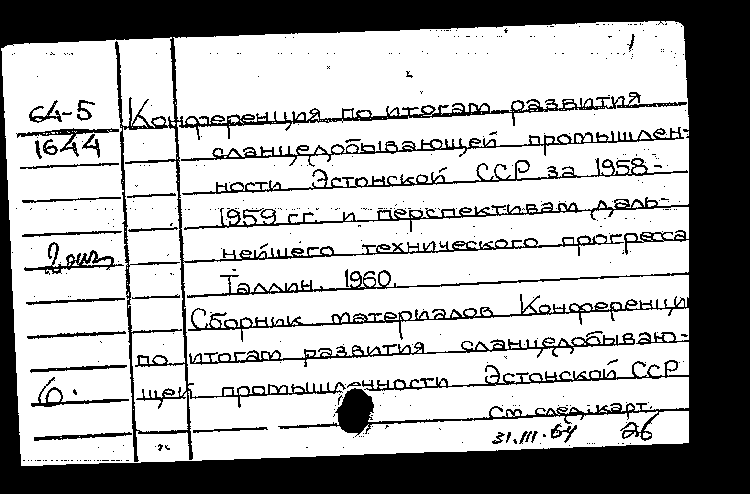 1
64-5 Конференция по итогам развития
1644 сланцедобывающей промышлен-
ности Эстонской ССР за 1958-
1959 гг. и перспективам даль-
2 экз. нейшего технического прогресса
Таллин. 1960.
Сборник материалов Конференци
по итогам развития сланцедобываю-
6. щей промышленности Эстонской ССР
См. след. карт.
31.III.64 26